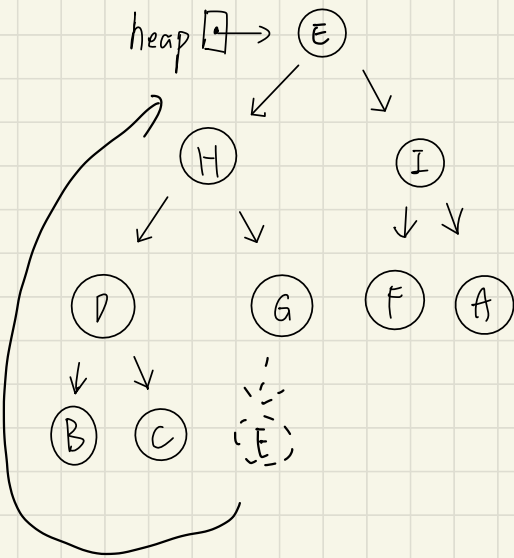 heap E
H I
D G F A
B C E